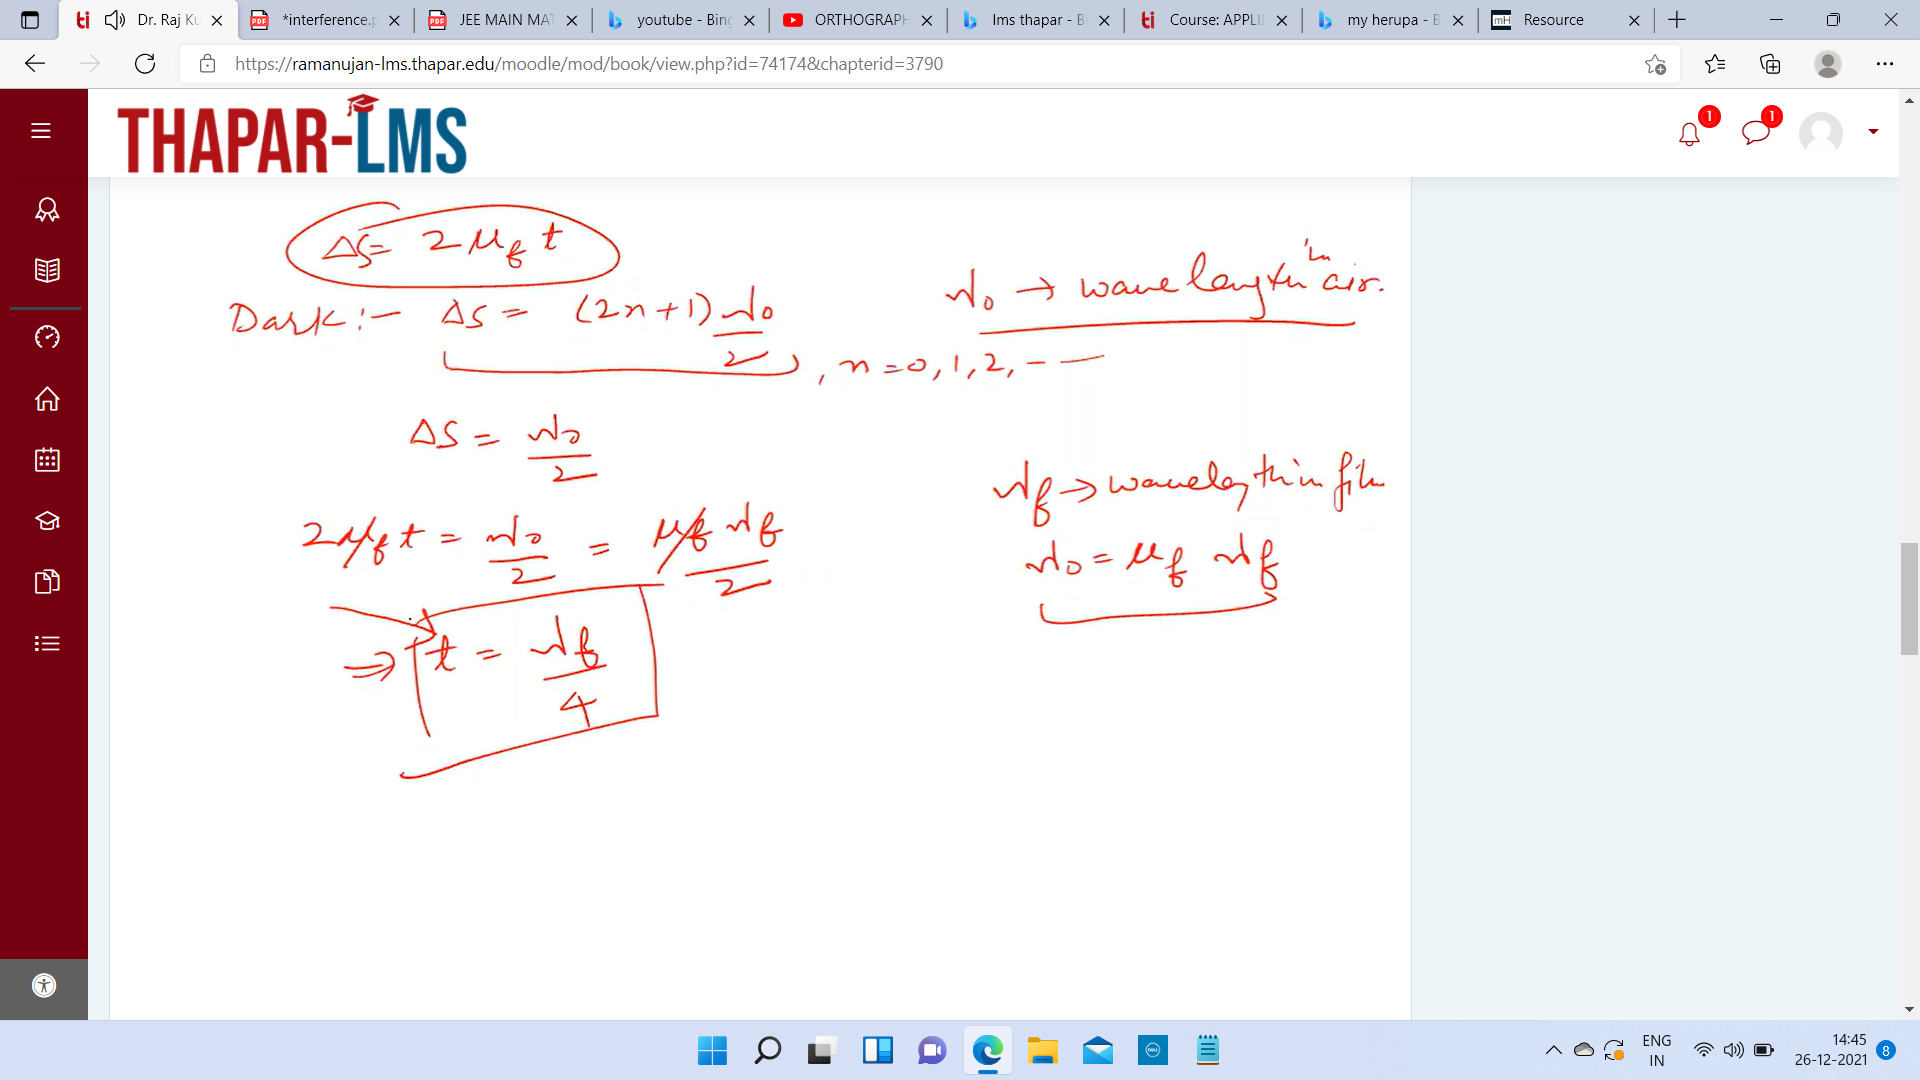 Dr. Raj Ku
*interference.p
JEE MAIN MAT
youtube - Bing
ORTHOGRAPH
lms thapar - B
Course: APPLIE
my herupa - B
Resource
https://ramanujan-lms.thapar.edu/moodle/mod/book/view.php?id=74174&chapterid=3790
THAPAR-LMS
1
1
ΔS = 2μ_f t
Dark :- ΔS = (2n+1) λ₀/2 , n = 0, 1, 2, - —
λ₀ → wavelength in air.
ΔS = λ₀/2
λ_f → wavelength in film
2μ_f t = λ₀/2 = μ_f λ_f/2
λ₀ = μ_f λ_f
⇒ t = λ_f/4
ENG
IN
14:45
26-12-2021
8